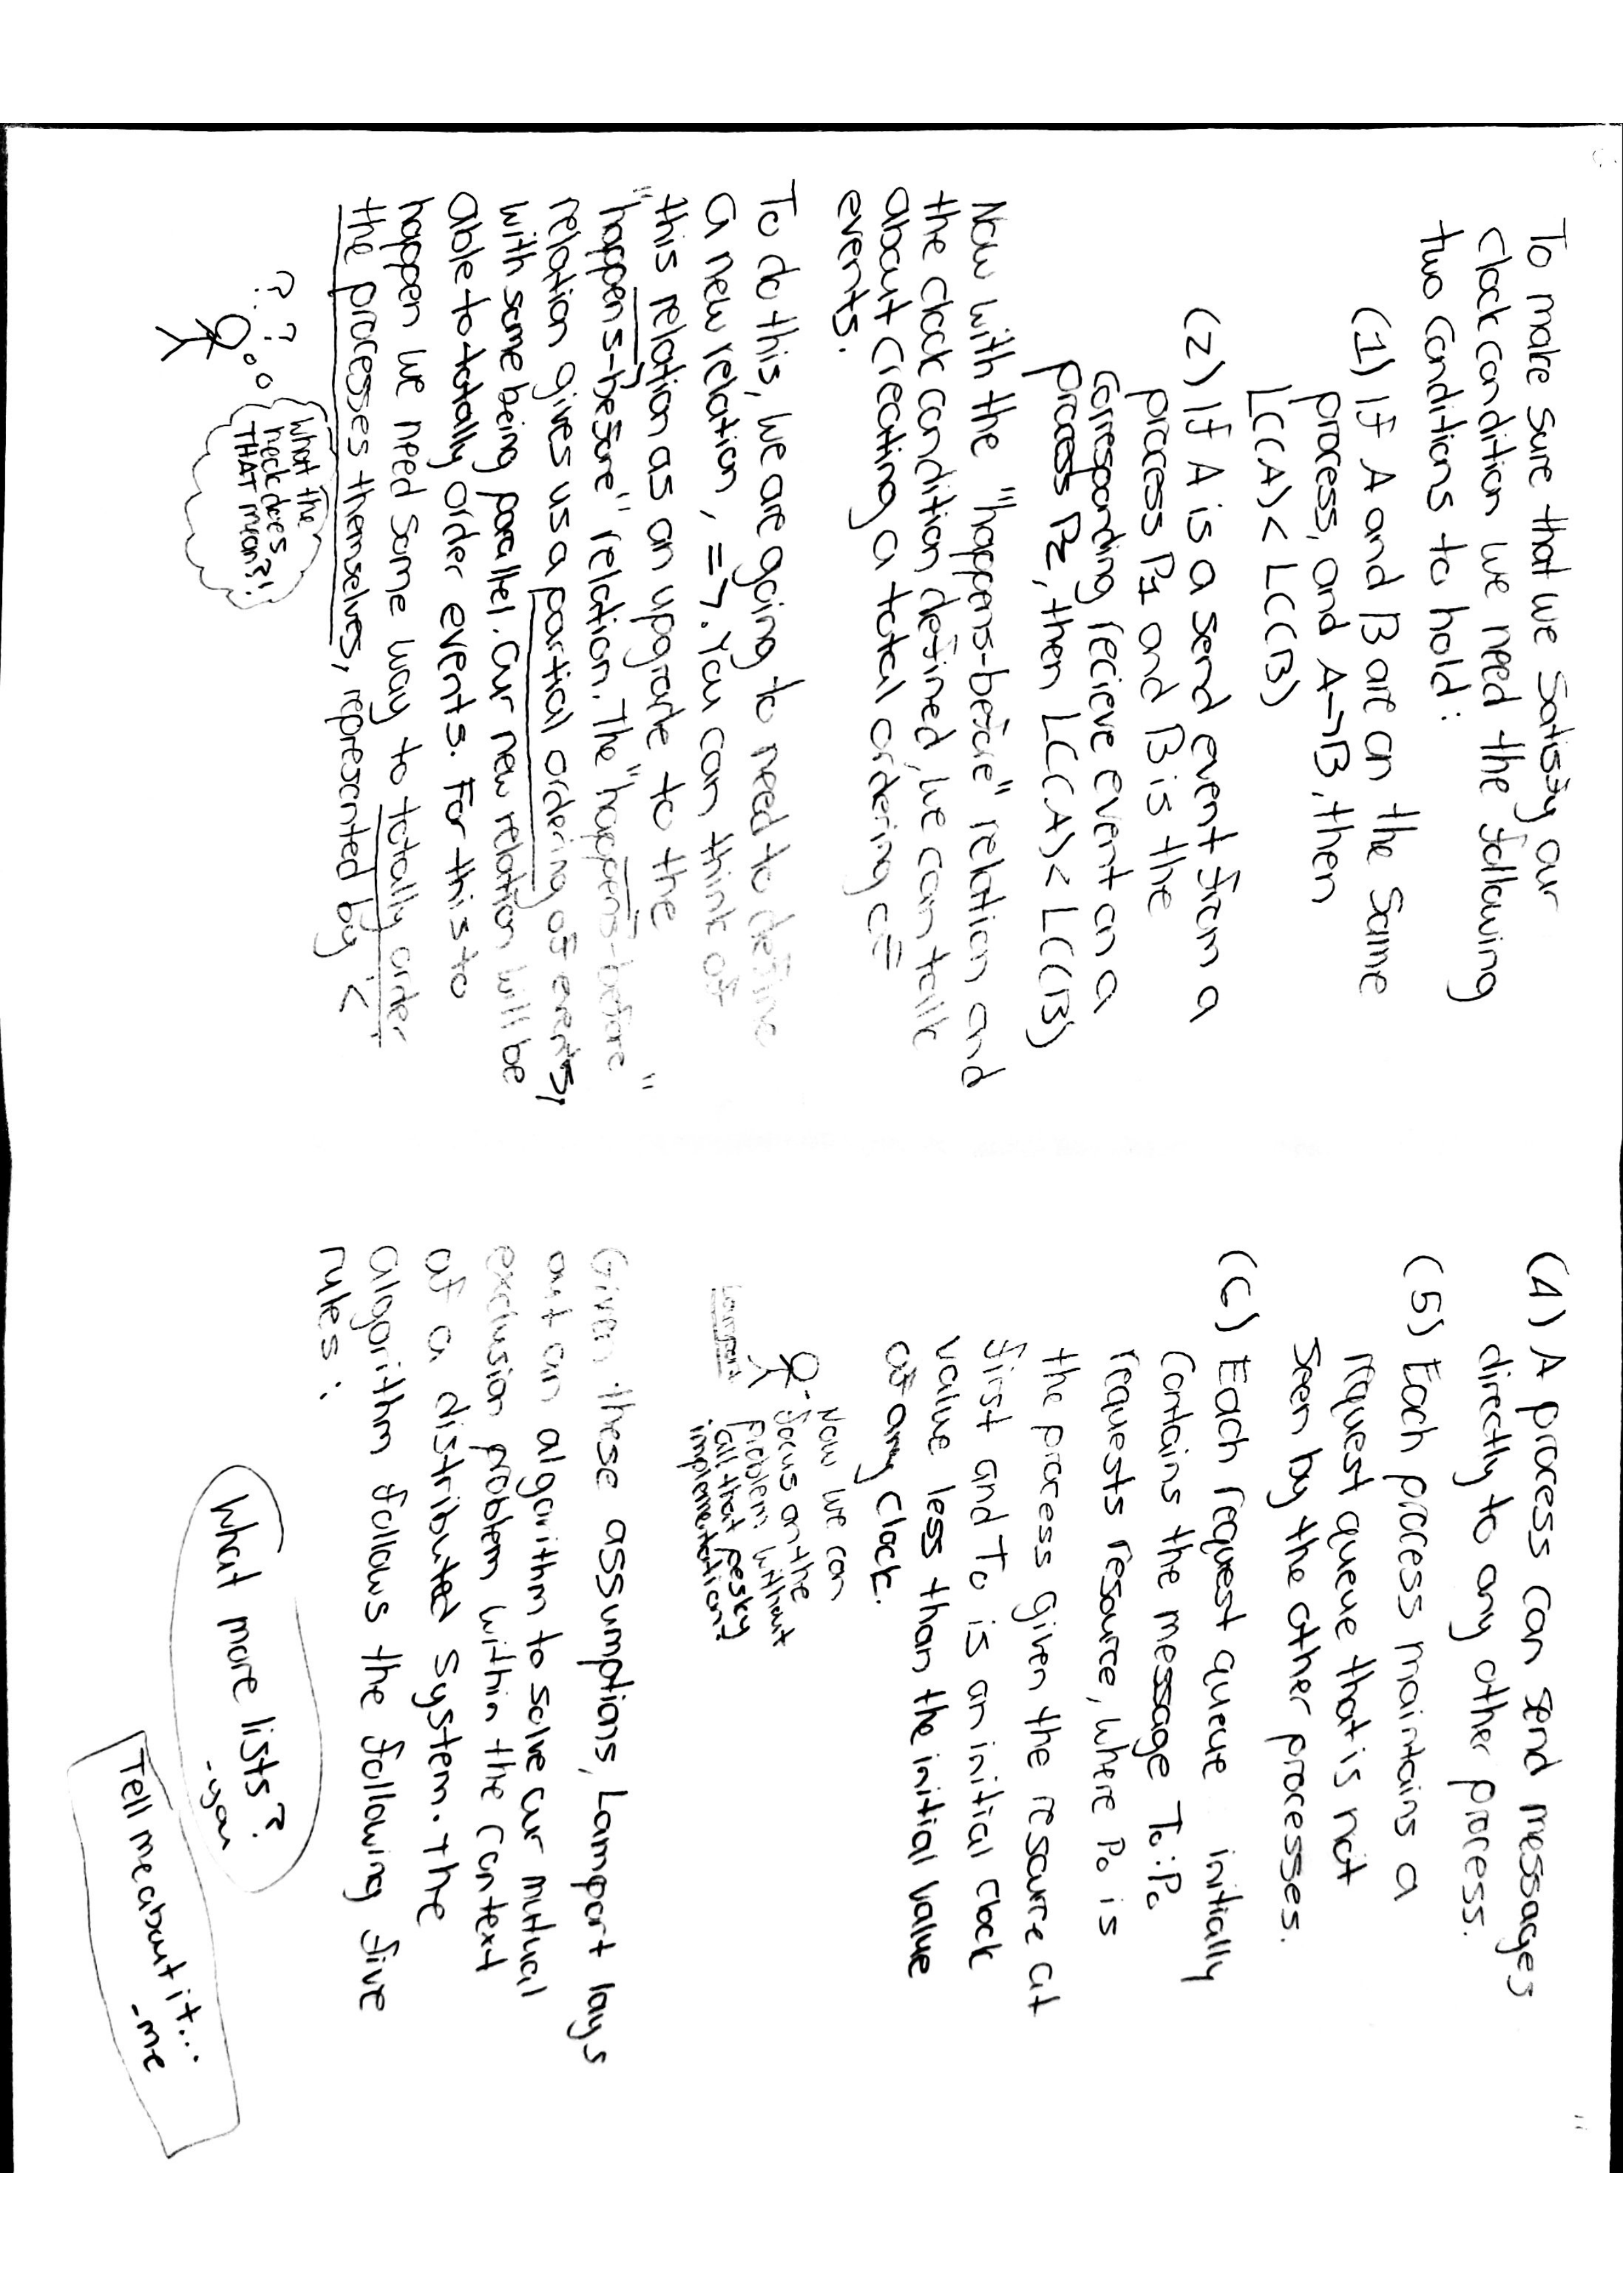 To make sure that we satisfy our
clock condition we need the following
two conditions to hold:
(1) If A and B are on the same
process, and A→B, then
LC(A) < LC(B)
(2) If A is a send event from a
process P1 and B is the
corresponding recieve event on a
process P2, then LC(A) < LC(B)
Now with the "happens-before" relation and
the clock condition defined, we can talk
about creating a total ordering of
events.
To do this, we are going to need to define
a new relation, =>. You can think of
this relation as an upgrade to the
"happens-before" relation. The "happens-before"
relation gives us a partial ordering of events,
with some being parallel. Our new relation will be
able to totally order events. For this to
happen we need some way to totally order
the processes themselves, represented by <
? ? ?
What the
heck does
THAT mean?!
(4) A process can send messages
directly to any other process.
(5) Each process maintains a
request queue that is not
seen by the other processes.
(6) Each request queue initially
contains the message To:Po
requests resource, where Po is
the process given the resource at
first and To is an initial clock
value less than the initial value
of any clock.
Now we can
focus on the
problem without
all that pesky
implementation!
Lamport
Given these assumptions, Lamport lays
out an algorithm to solve our mutual
exclusion problem within the context
of a distributed system. The
algorithm follows the following five
rules:
What more lists?
-you
Tell me about it...
-me
11